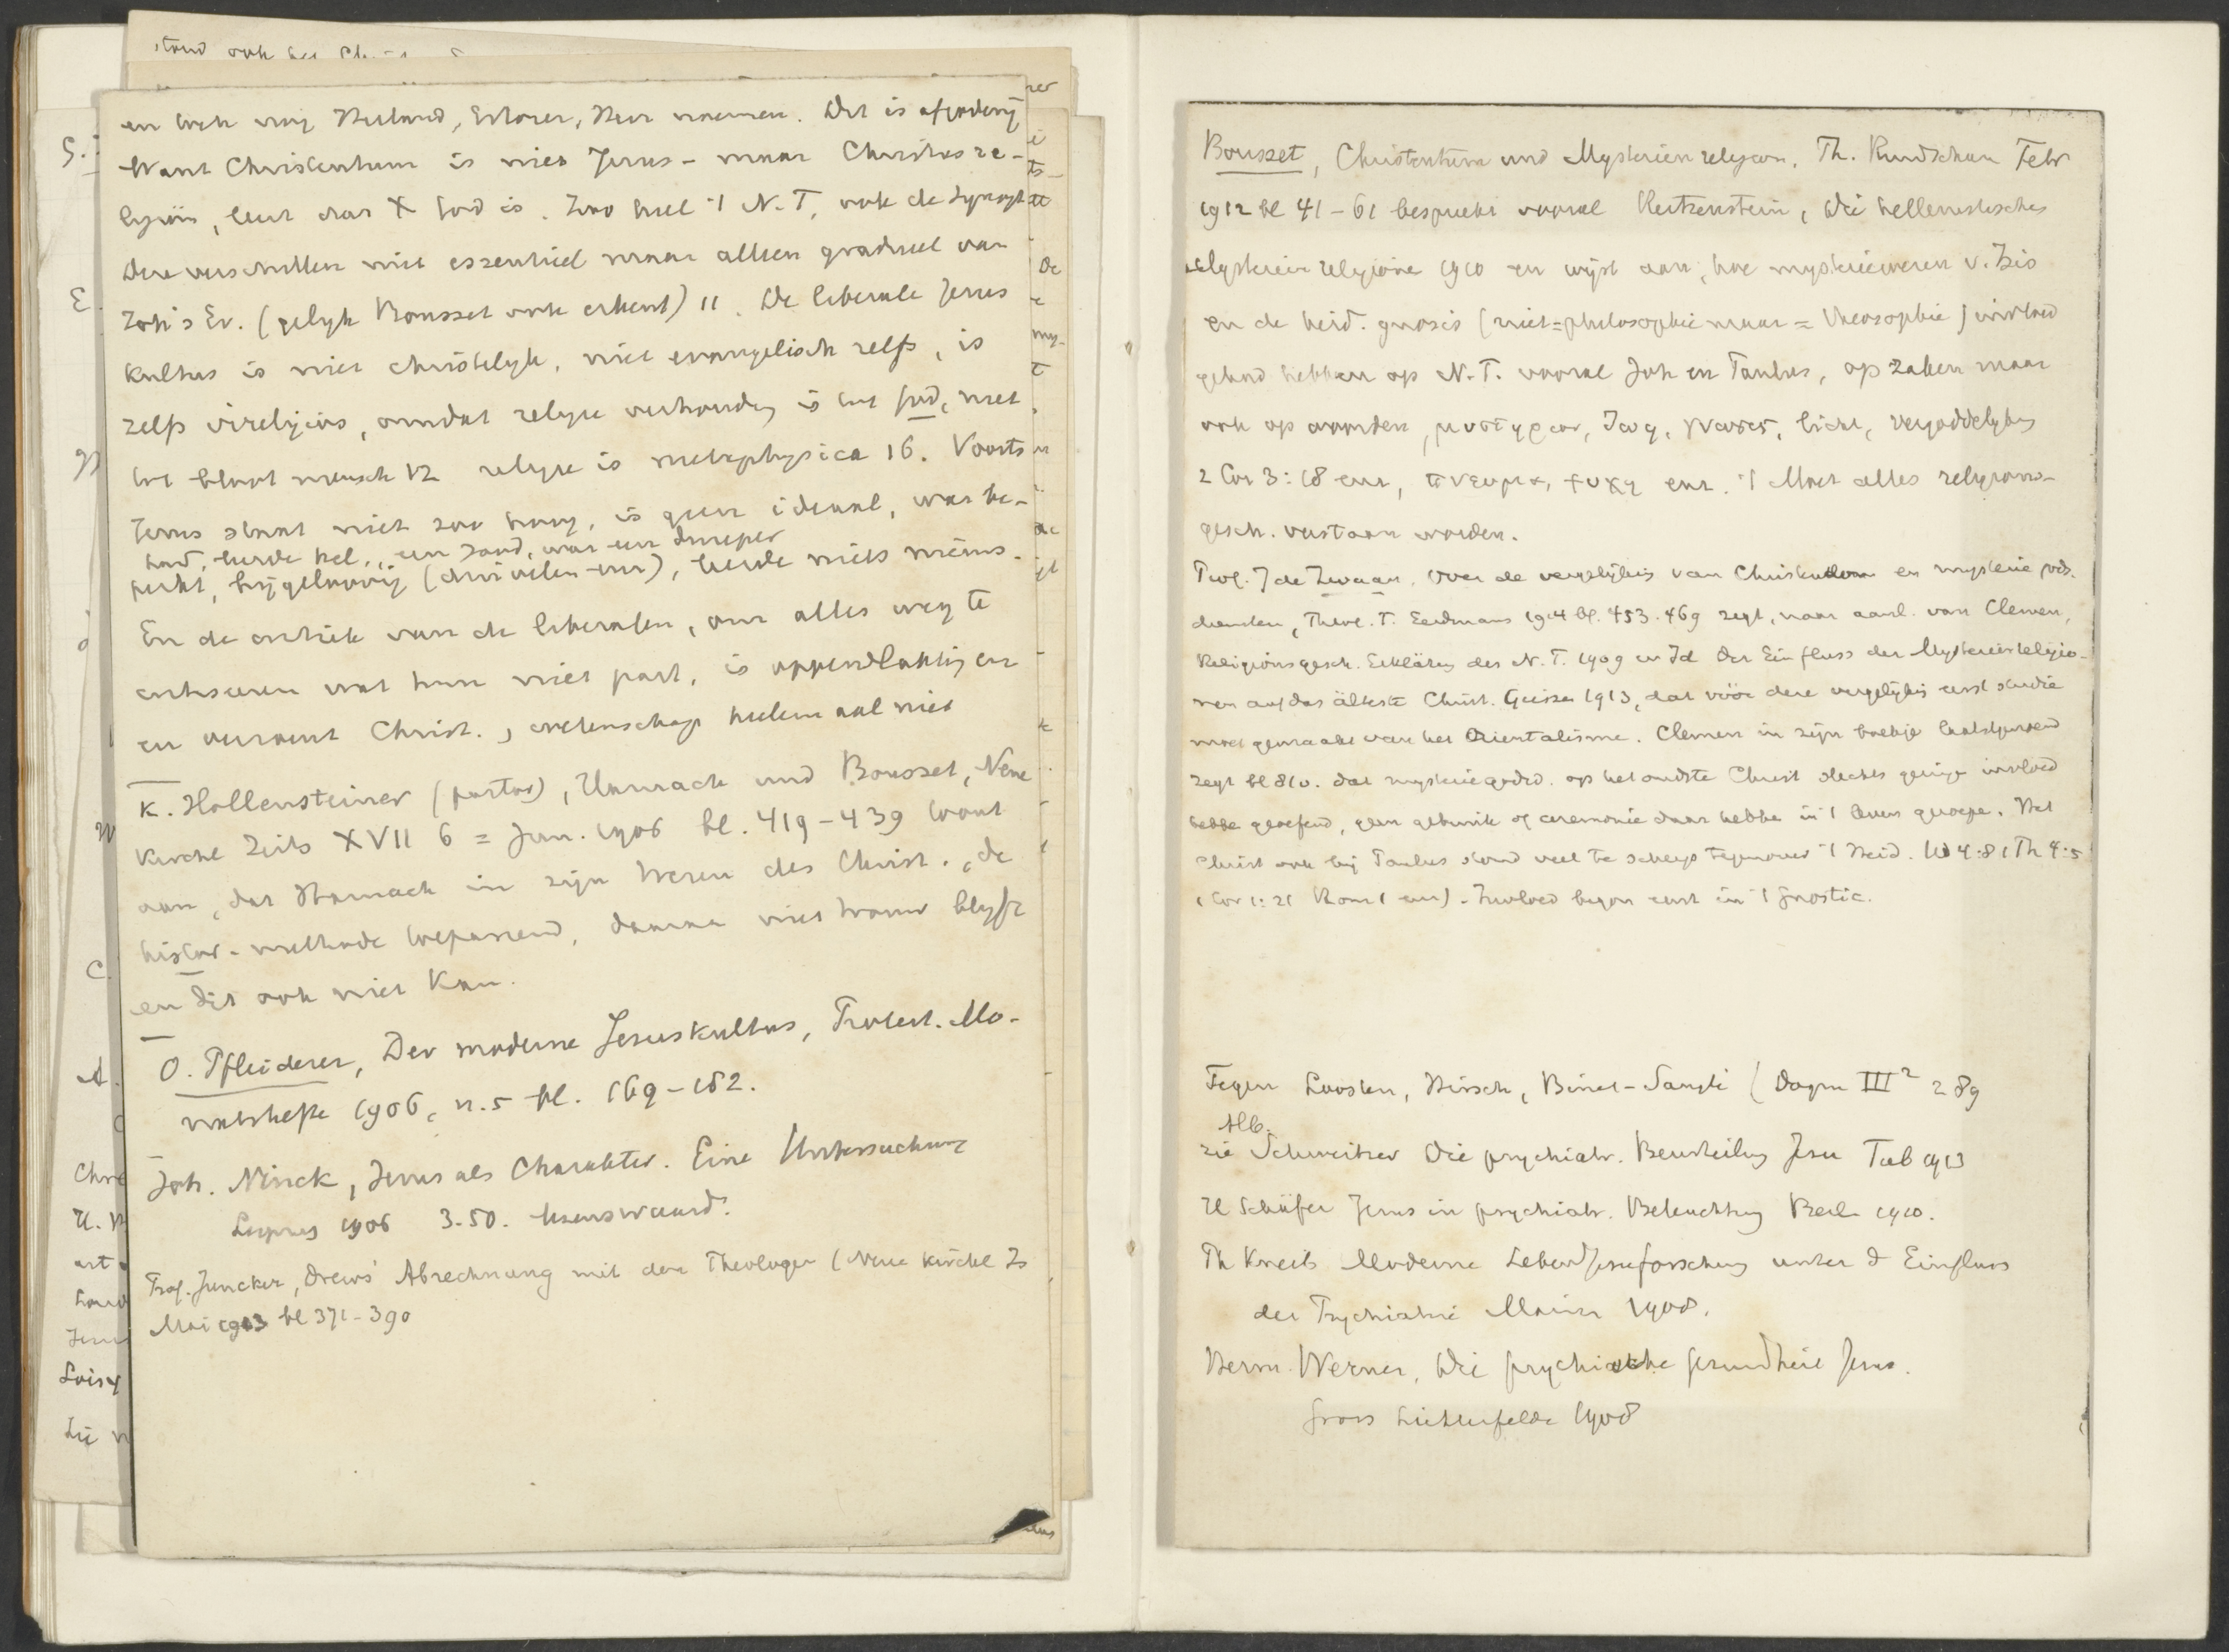 en toch nog Heiland, Erlöser, Heer noemen. Dit is afgoderij
Want Christentum is niet Jesus- maar Christusre-
ligion, leert dat X God is. Zoo heel 't N.T, ook de Synopt
Deze verschillen niet essentieel maar alleen gradueel van
Joh's Ev. (gelyk Bousset ook erkent) 11. De liberale Jesus
Kultus is niet christelyk, niet evangelisch zelfs, is
zelfs irreligios, omdat religie verhouding is tot God, niet
tot bloot mensch 12 religie is metaphysica 16. Voorts
Jezus staat niet zoo hoog, is geen ideaal, was be-
had, leerde hel, een zond, was een
perkt, bijgeloovig (duivelen enz), leerde niets nieuws.
En de critiek van de liberalen, om alles weg te
critiseeren wat hun niet past, is oppervlakkig en
en verwoest Christ., wetenschap heelemaal niet
K. Hollensteiner (pastor), Harnack und Bousset, Neue
Kirchl Zeits XVII 6 = Jun. 1906 bl. 419-439 toont
aan, dat Harnack in zijn Wesen des Christ., de
histor. methode toepassend, daaraan niet trouw blyft
en dit ook niet kan.
O. Pfleiderer, Der moderne Jesuskultus, Protest. Mo-
natshefte 1906, n. 5 bl. 169-182.
Joh. Ninck, Jesus als Charakter. Eine Untersuchung
Leipzig 1906 3.50. lezenswaard.
Prof. Juncker, Drews' Abrechnung mit den Theologen (Neue Kirchl Zs
Mai 1913 bl 371-390
Bousset, Christentum und Mysterienreligion, Th. Rundschau Febr
1912 bl 41-61 bespreekt vooral Reitzenstein, Die hellenistischen
Mysterienreligione 1910 en wijst aan, hoe mysteriewezen v. Isis
en de heid. gnosis (niet = philosophie maar = theosophie) invloed
gehad hebben op N.T. vooral Joh en Paulus, op zaken maar
ook op woorden, μυστηριον, ζωη, γνωσις, licht, vergoddelyking
2 Cor 3:18 enz, πνευμα, ψυχη enz. 't Moet alles religions-
gesch. verstaan worden.
Prof. J de Zwaan, Over de vergelijking van Christendom en mysterie gods.
diensten, Theol. T. Eerdmans 1914 bl. 453-469 zegt, naar aanl. van Clemen,
Religionsgesch. Erklärung des N.T. 1909 en Id Der Einfluss der Mysterienreligio-
nen auf das älteste Christ. Giessen 1913, dat vóór deze vergelijking eerst studie
moet gemaakt van het Orientalisme. Clemen in zijn boekje laatstgenoemd
zegt bl 81v. dat mysteriegodsd. op het oudste Christ slechts geringe invloed
hebbe geoefend, geen gebruik of ceremonie daar hebbe in 't leven geroepe. Het
Christ ook bij Paulus stond veel te scherp tegenover 't Heid. Gal 4:8 1 Th 4:5
1 Cor 1:21 Rom 1 enz). Invloed begon eerst in 't Gnostic.
Tegen Loosten, Hirsch, Binet-Sanglé (Dogm III² 289
Alb.
zie Schweitzer Die psychiatr. Beurteilung Jesu Tüb 1913
H Schäfer Jesus in psychiatr. Beleuchtung Berl. 1910.
Th Kneib Moderne Leben Jesuforschung unter d Einfluss
der Psychiatrie Mainz 1908.
Herm. Werner, Die psychische Gesundheit Jesus.
Gross Lichterfelde 1908